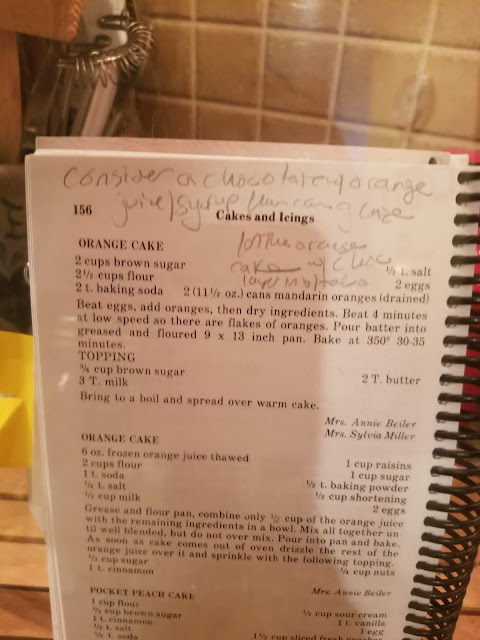 consider a chocolate w/ orange
juice/syrup
156
Cakes and Icings
/or the orange
ORANGE CAKE
w/ choc
2 cups brown sugar ½ t. salt
2½ cups flour 2 eggs
2 t. baking soda 2 (11½ oz.) cans mandarin oranges (drained)
Beat eggs, add oranges, then dry ingredients. Beat 4 minutes
at low speed so there are flakes of oranges. Pour batter into
greased and floured 9 x 13 inch pan. Bake at 350° 30-35
minutes.
TOPPING
¾ cup brown sugar 2 T. butter
3 T. milk
Bring to a boil and spread over warm cake.
Mrs. Annie Beiler
Mrs. Sylvia Miller
ORANGE CAKE
6 oz. frozen orange juice thawed 1 cup raisins
2 cups flour 1 cup sugar
1 t. soda ½ t. baking powder
¼ t. salt ½ cup shortening
½ cup milk 2 eggs
Grease and flour pan, combine only ½ cup of the orange juice
with the remaining ingredients in a bowl. Mix all together un-
til well blended, but do not over mix. Pour into pan and bake.
As soon as cake comes out of oven drizzle the rest of the
orange juice over it and sprinkle with the following topping.
½ cup sugar ¼ cup nuts
1 t. cinnamon
Mrs. Annie Beiler
POCKET PEACH CAKE
1 cup flour ½ cup sour cream
½ cup brown sugar 1 t. vanilla
1 t. cinnamon 1 egg
½ t. salt 1½ cup sliced fresh peaches
½ t. soda